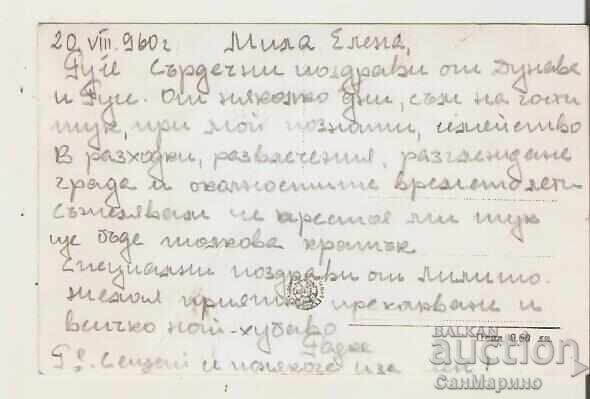 20. VIII. 960 г. Мила Елена,
Русе сърдечни поздрави от Дунава
и Русе. От няколко дни, съм на гости
тук, при мой познати, семейство
В разходки, развлечения, разглеждане
града и околностите времето лети
съжалявам че престоя ми тук
ще бъде толкова кратък
Специални поздрави от Лилито.
Желая приятно прекарване и
всичко най-хубаво
Радка
P.S. Сещай и понякога и за мен!
BALKAN
auction
СанМарино
Цена 0.60 лв.